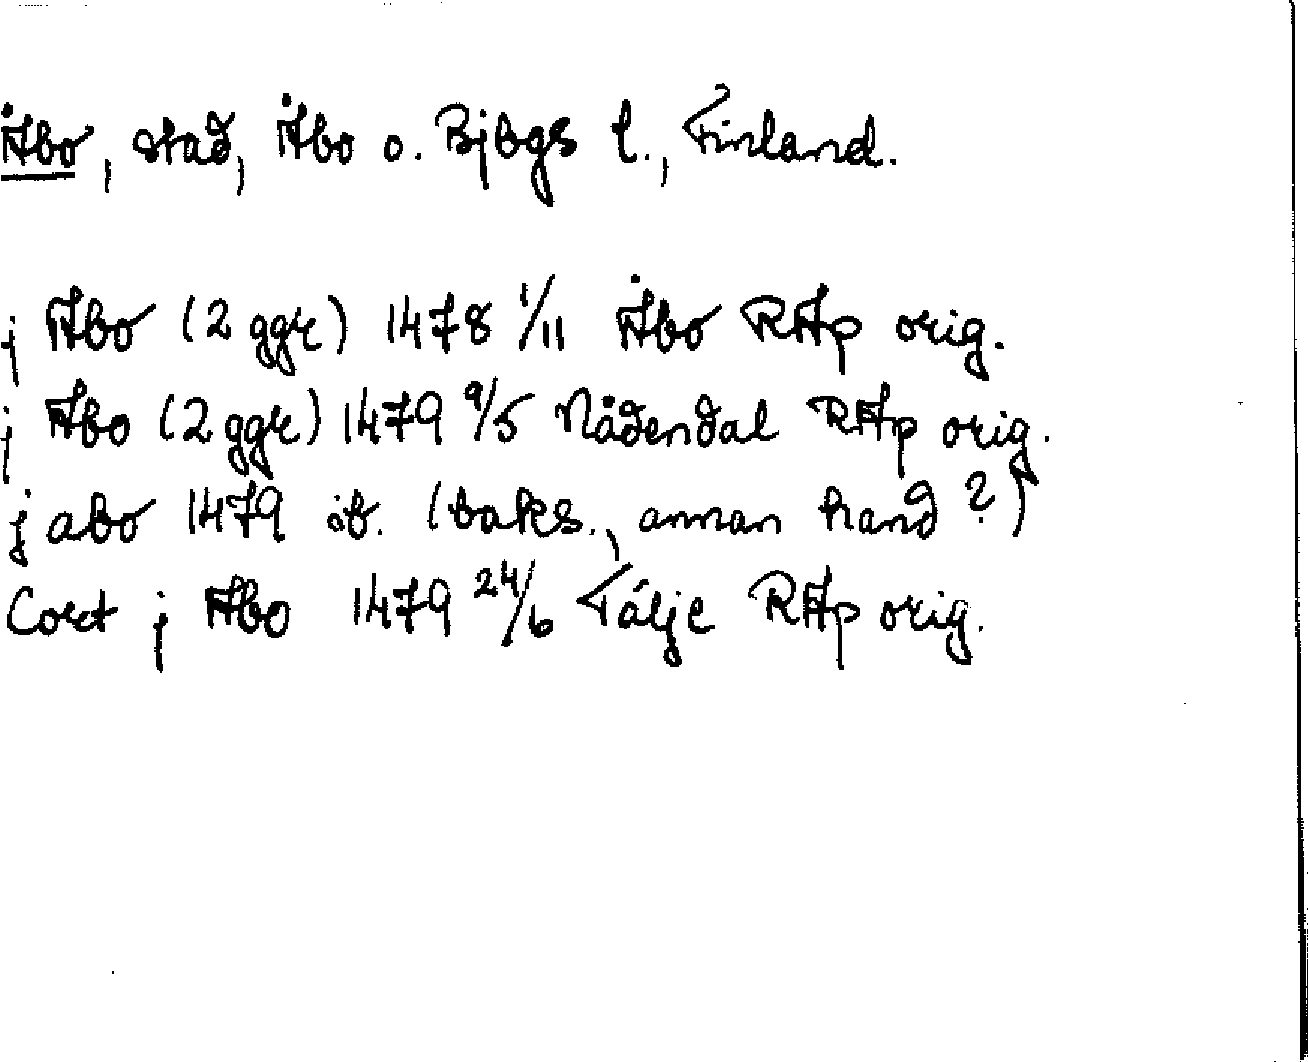 Åbo, stad, Åbo o. Bjbgs l., Finland.
j Åbo (2 ggr) 1478 1/11 Åbo RAp orig.
j Åbo (2 ggr) 1479 9/5 Nådendal RAp orig.
j abo 1479 ib. (baks., annan hand?)
Cort j Åbo 1479 24/6 Tälje RAp orig.